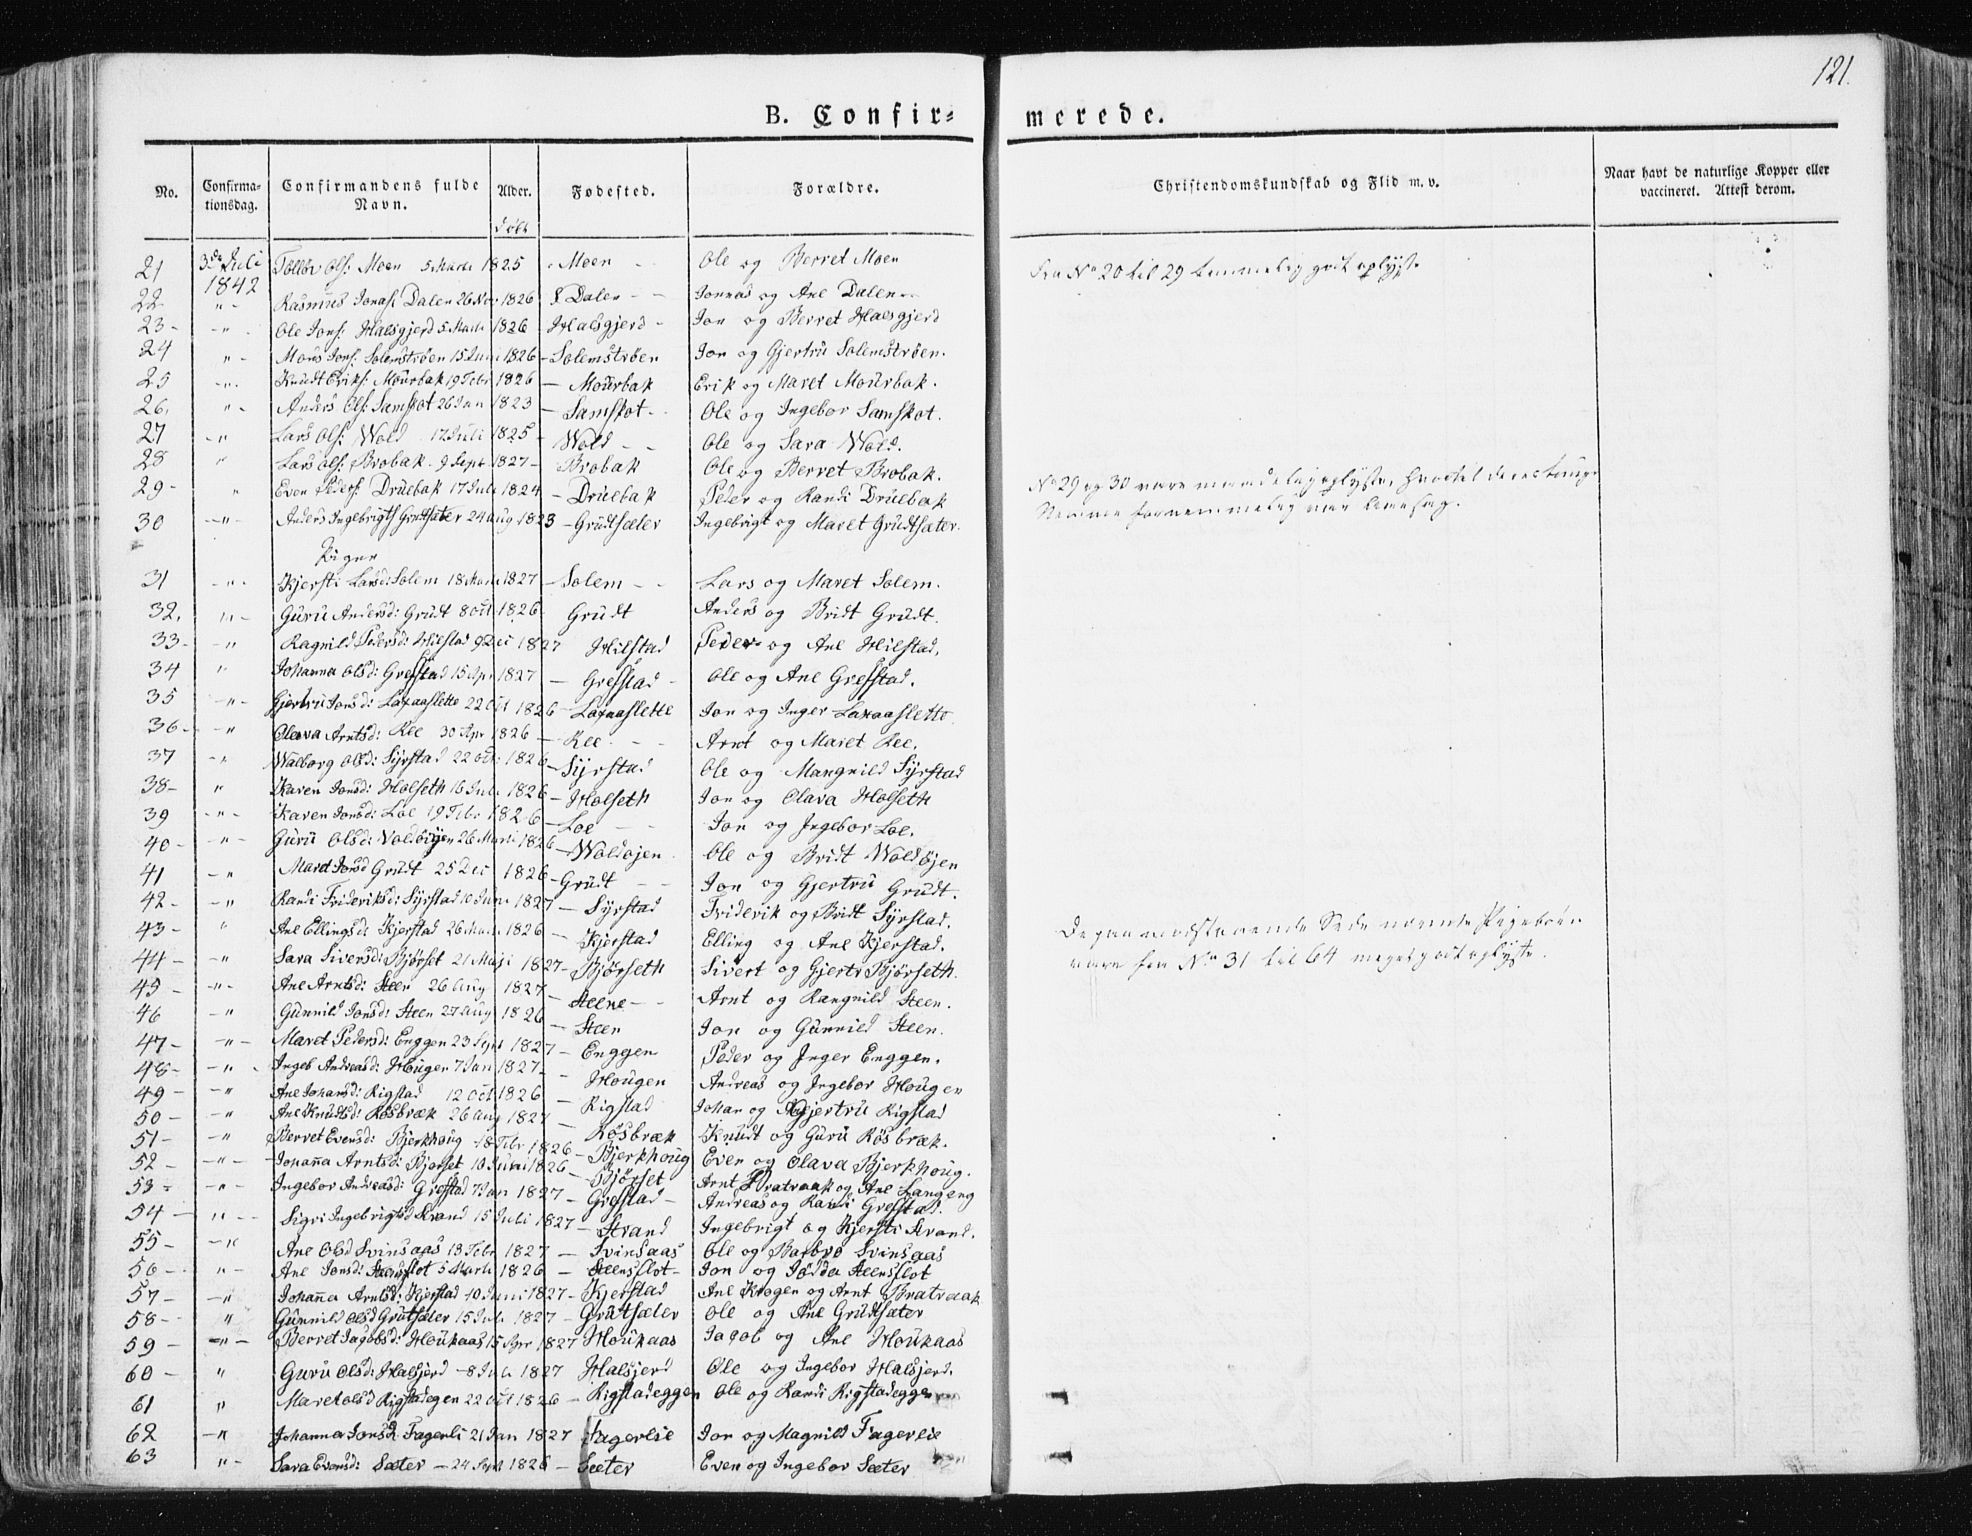 121.
B. Confir= merede.
No. Confirma-tionsdag. Confirmandens fulde Navn. Alder. Fødested. Forældre. Christendomskundskab og Flid m. v. Naar havt de naturlige Kopper eller vaccineret. Attest derom.
døbt
21 3de Juli 1842 Ols: Moen 5 Marts 1825 Moen Ole og Berret Moen Fra No 20 til 29 temmelig godt oplyste
22 " Rasmus Jonas: Dalen 26 Nov 1826 Dalen Jonnas og Ane Dalen
23 " Ole Jons: Halsgjerd 5 Marts 1826 Halsgjerd Jon og Berret Halsgjerd
24 " Mons Jons: Solemstrøen 15 Juni 1826 Solemstrøen Jon og Gjertru Solemstrøen.
25 " Knudt Eriks: Mourbak 19 Febr 1826 Mourbak Erik og Maret Mourbak.
26. " Anders Ols: Samskot 26 Jan 1823 Samskot Ole og Ingebor Samskot.
27 " Lars Ols: Wold 17 Juli 1825 Wold Ole og Sara Wold.
28 " Lars Ols: Brobak 9 Sept 1827 Brobak Ole og Berret Brobak.
29 " Even Peders: Druebak 17 Juli 1824 Druebak Peder og Randi Druebak No 29 og 30 vare maadelig oplyste,
30 " Anders Ingebrigts Grudtsæter 24 aug 1823 Grudtsæter Ingebrigt og Maret Grudtsæter.
Piger
31 " Kjersti Larsd: Solem 18 Marts 1827 Solem Lars og Maret Solem.
32. " Guru Andersd: Grudt 8 oct 1826 Grudt Anders og Bridt Grudt.
33 " Ragnild Pedersd: Hilstad 9 Dec 1827 Hilstad Peder og Ane Hilstad,
34 " Johanna Olsd: Grefstad 15 Apr 1827 Grefstad Ole og Ane Grefstad.
35 " Gjertru Jonsd: Laxaaslette 22 oct 1826 Laxaaslette Jon og Inger Laxaaslette
36 " Olava Arntsd: Ree 30 Apr 1826 Ree Arnt og Maret Ree.
37 " Walborg Olsd: Syrstad 22 oct 1826 Syrstad Ole og Mangnild Syrstad
38 " Karen Jonsd: Holseth 16 Juli 1826 Holseth Jon og Olava Holseth
39 " Karen Jonsd: Loe 19 Febr 1826 Loe Jon og Ingebor Loe.
40 " Guru Olsd: Voldøyen 26 Marts 1826 Woldøjen Ole og Bridt Woldøjen
41 " Maret Jonsd Grudt 25 Dec 1826 Grudt Jon og Gjertru Grudt.
42 " Randi Frideriksd: Syrstad 10 Juni 1827 Syrstad Friderik og Bridt Syrstad.
43 " Ane Ellingsd: Kjerstad 26 Marts 1826 Kjerstad Elling og Ane Kjerstad. De paa modstaaende Side nævnte Pigebørn
44 " Sara Siversd: Bjørset 21 Maji 1827 Bjørseth Sivert og Gjertr Bjørseth. vare fra No 31 til 64 meget godt oplyste.
45 " Ane Arntsd: Steen 26 Aug 1827 Steene Arnt og Rangnild Steen.
46 " Gunnild Jonsd: Steen 27 aug 1826 Steen Jon og Gunnild Steen.
47 " Maret Pedersd: Enggen 23 Sept 1827 Enggen Peder og Inger Enggen.
48 " Ingeb Andreasd: Hougen 7 Jan 1827 Hougen Andreas og Ingebor Hougen
49 " Ane Johansd: Rigstad 12 Oct 1826 Rigstad Johan og Gjertru Rigstad
50 " Ane Knudtsd: Røsbræk 26 aug 1827 Røsbræk Knudt og Guru Røsbræk.
51 " Berret Evensd: Bjerkhoug 18 Febr 1826 Bjerkhoug Even og Olava Bjerkhoug.
52 " Johanna Arntsd: Bjerset 10 Juni 1826 Bjørset Arnt Bratraak og Ane Langeng
53 " Ingebor Andreasd: Grefstad 7 Jan 1827 Grefstad Andreas og Randi Grefstad.
54 " Sigri Ingebrigtsd Strand 15 Juli 1827 Strand Ingebrigt og Kjersti Strand.
55 " Ane Olsd Svinsaas 13 Febr 1827 Svinsaas Ole og Barbro Svinsaas
56 " Ane Jonsd: Steensslot 5 Marts 1826 Steensslot Jon og Steensslot
57 " Johanna Arntsd: Kjerstad 10 Juni 1827 Kjerstad Ane Krogen og Arnt Bratraak
58 " Gunnild Olsd Grutsæter 15 Juli 1827 Grutsæter Ole og Ane Grudtsæter
59 " Berret Jagobsd: Houkaas 15 Apr 1827 Houkaas Jacob og Ane Houkaas
60 " Guru Olsd: Halsjerd 8 Juli 1827 Halsjerd Ole og Ingebor Halsjerd.
61 " Maret olsd Rigstadegen 22 oct 1826 Rigstadeggen Ole og Randi Rigstadeggen
62 " Johanna Jonsd Fagerli 21 Jan 1827 Fagerlie Jon og Magnild Fagerlie
63 " Sara Evensd: Sæter 24 Sept 1826 Sæter Even og Ingebor Sæter